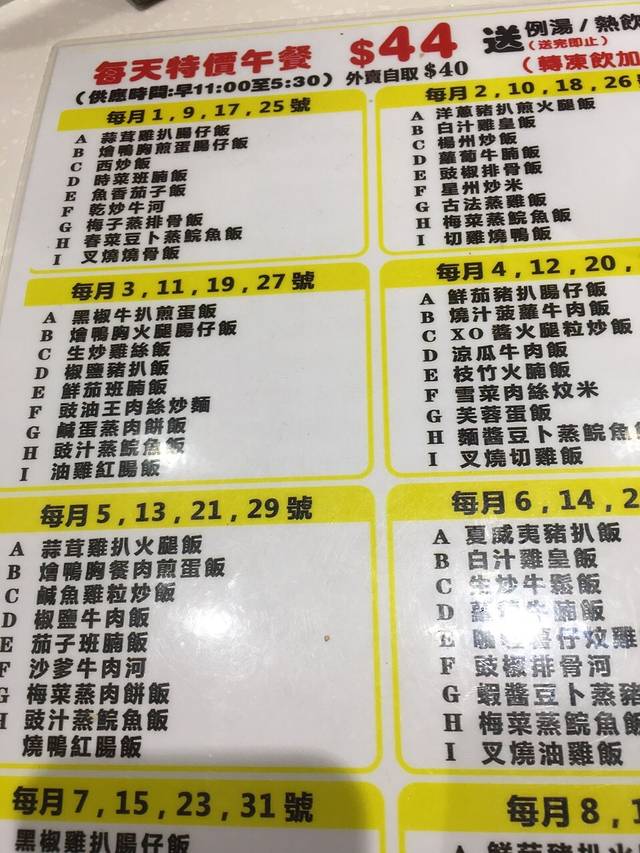 每天特價午餐 $44 送 例湯 / 熱飲
(送完即止)
(供應時間:早11:00至5:30) 外賣自取 $40 (轉凍飲加
每月 1 , 9 , 17 , 25 號
A 蒜茸雞扒腸仔飯
B 燴鴨胸煎蛋腸仔飯
C 西炒飯
D 時菜班腩飯
E 魚香茄子飯
F 乾炒牛河
G 梅子蒸排骨飯
H 春菜豆卜蒸鯇魚飯
I 叉燒燒骨飯
每月 2 , 10 , 18 , 26
A 洋蔥豬扒煎火腿飯
B 白汁雞皇飯
C 楊州炒飯
D 蘿蔔牛腩飯
E 豉椒排骨飯
F 星州炒米
G 古法蒸雞飯
H 梅菜蒸鯇魚飯
I 切雞燒鴨飯
每月 3 , 11 , 19 , 27 號
A 黑椒牛扒煎蛋飯
B 燴鴨胸火腿腸仔飯
C 生炒雞絲飯
D 椒鹽豬扒飯
E 鮮茄班腩飯
F 豉油王肉絲炒麵
G 鹹蛋蒸肉餅飯
H 豉汁蒸鯇魚飯
I 油雞紅腸飯
每月 4 , 12 , 20 ,
A 鮮茄豬扒腸仔飯
B 燒汁菠蘿牛肉飯
C XO醬火腿粒炒飯
D 涼瓜牛肉飯
E 枝竹火腩飯
F 雪菜肉絲炆米
G 芙蓉蛋飯
H 麵醬豆卜蒸鯇魚
I 叉燒切雞飯
每月 5 , 13 , 21 , 29 號
A 蒜茸雞扒火腿飯
B 燴鴨胸餐肉煎蛋飯
C 鹹魚雞粒炒飯
D 椒鹽牛肉飯
E 茄子班腩飯
F 沙爹牛肉河
G 梅菜蒸肉餅飯
H 豉汁蒸鯇魚飯
燒鴨紅腸飯
每月 6 , 14 , 2
A 夏威夷豬扒飯
B 白汁雞皇飯
C 生炒牛鬆飯
D 蘿蔔牛腩飯
E 仔炆雞
F 豉椒排骨河
G 蝦醬豆卜蒸豬
H 梅菜蒸鯇魚飯
I 叉燒油雞飯
每月 7 , 15 , 23 , 31 號
黑椒雞扒腸仔飯
每月 8 , 1
A